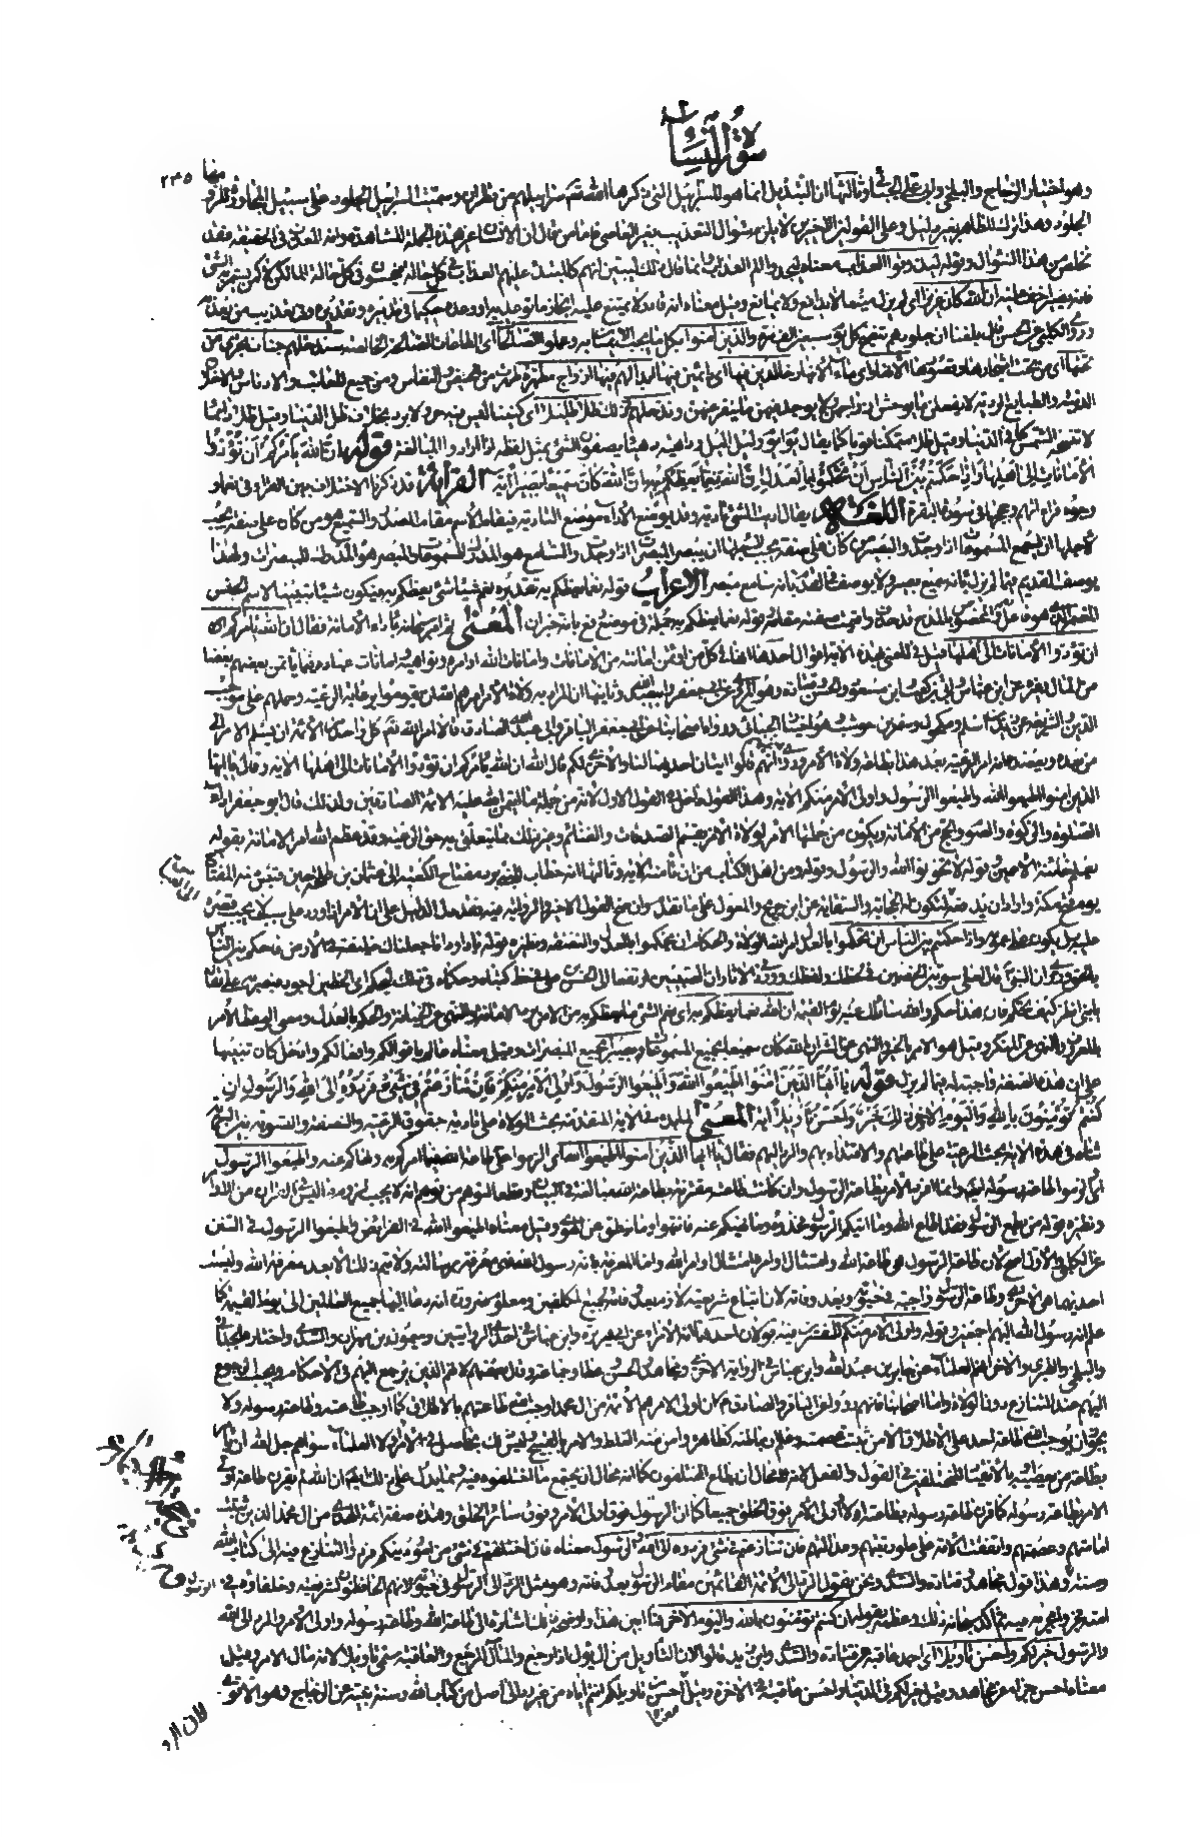 سورة النساء
منها ٢٣٥
وهو اختيار الزجاج والبلخي وابي علي الجبائي وثالثها ان التبديل انما هو للسرابيل التي ذكرها الله تعالى سرابيلهم من قطران وسميت السرابيل الجلود على سبيل المجاورة
الجلود وهذا ترك للظاهر بغير دليل وعلى القولين الاخيرين لا يلزم سؤال التعذيب بغير العاصي فاما من قال ان الانسان غير هذه الجملة المشاهدة وانه المعذب في الحقيقة فقد
تخلص من هذا السؤال وقوله ليذوقوا العذاب معناه ليجدوا الم العذاب وانما قال ذلك ليبين انهم كالمبتدأ عليهم العذاب في كل حالة فيحسون في كل حالة الما لكن لا كمن يستمر به الشيء
فانه يصير اخف عليه ان الله كان عزيزا اي لم يزل منيعا لا يدافع ولا يمانع وقيل معناه انه قادر لا يمتنع عليه انجاز ما توعد به او وعده حكيما في تدبيره وتقديره وفي تعذيب من يعذبه
وروى الكلبي عن الحسن قال بلغنا ان جلودهم تنضج كل يوم سبعين الف مرة والذين امنوا بكل ما يجب الايمان به وعملوا الصالحات اي الطاعات الصالحة الخالصة سندخلهم جنات تجري من
تحتها اي من تحت اشجارها وقصورها الانهار اي ماء الانهار خالدين فيها اي دائمين فيها ابدا لهم فيها ازواج مطهرة طهرت من الحيض والنفاس ومن جميع المعائب والادناس والاخلاق
الدنية والطبائع الردية لا يفعلن ما يوحش ازواجهن ولا يوجد فيهن ما ينفر عنهن وندخلهم ظلا ظليلا اي كنينا ليس فيه حر ولا برد بخلاف ظل الدنيا وقيل ظلا دائما
لا تنسخه الشمس كما في الدنيا وقيل ظلا متمكنا قويا كما يقال يوم ايوم وليل اليل وداهية دهياء يصفون الشيء بمثل لفظه اذا ارادوا المبالغة قوله ان الله يأمركم ان تؤدوا
الأمانات الى اهلها واذا حكمتم بين الناس ان تحكموا بالعدل ان الله نعما يعظكم به ان الله كان سميعا بصيرا آية القراءة قد ذكرنا الاختلاف بين القراء في نعما
وجوه قراءاتهم وحججها في سورة البقرة اللغة يقال اديت الشئ تأدية وقد يوضع الاداء موضع التأدية فيقام الاسم مقام المصدر والسميع هو من كان على صفة يجب
لاجلها ان يسمع المسموعات اذا وجدت والبصير من كان على صفة يجب لاجلها ان يبصر المبصرات اذا وجدت والسامع هو المدرك للمسموعات والمبصر هو المدرك للمبصرات ولهذا
يوصف القديم فيما لم يزل بانه سميع بصير ولا يوصف في القدم بانه سامع مبصر الاعراب قوله نعما يعظكم به تقديره نعم شيئا شئ يعظكم به فيكون شيئا تبيينا لاسم الجنس
المعنى ثم امر سبحانه باداء الامانة فقال ان الله يامركم
ان تؤدوا الأمانات الى اهلها قيل في المعني بهذه الآية اقوال احدها انها في كل من اؤتمن امانة من الامانات وامانات الله اوامره ونواهيه وامانات عباده فيما يأتمن بعضهم بعضا
من المال وغيره عن ابن عباس وابي بن كعب وابن مسعود والحسن وقتادة وهو المروي عن ابي جعفر وابي عبد الله وثانيها ان المراد به ولاة الأمر امرهم الله ان يقوموا برعاية الرعية وحملهم على موجب
الدين والشريعة عن زيد بن اسلم ومكحول وشهر بن حوشب وهو اختيار الجبائي ورواه اصحابنا عن ابي جعفر الباقر وابي عبد الله الصادق قالا امر الله كل واحد من الأئمة ان يسلم الأمر الى
من بعده ويعضده انه امر الرعية بعد هذا بطاعة ولاة الأمر وروي انهم قالوا آيتان احداهما لنا والأخرى لكم قال الله ان الله يامركم ان تؤدوا الأمانات الى اهلها الآية وقال يا ايها
الذين امنوا اطيعوا الله واطيعوا الرسول واولى الأمر منكم الآية وهذا القول داخل في القول الاول لانه من جملة ما ائتمن الله عليه الأئمة الصادقين ولذلك قال ابو جعفر اداء
الصلوة والزكوة والصوم والحج من الأمانة ويكون من جملتها الأمر لولاة الأمر بقسم الصدقات والغنائم وغير ذلك مما يتعلق به حق الرعية وقد عظم الله امر الامانة بقوله
يعلم خائنة الأعين وقوله لا تخونوا الله والرسول وقوله ومن اهل الكتاب من ان تأمنه الآية وثالثها انه خطاب للنبي برد مفتاح الكعبة الى عثمان بن طلحة حين قبض منه المفتاح
يوم فتح مكة واراد ان يدفعه الى العباس لتكون له الحجابة والسقاية عن ابن جريج والمعول على ما تقدم وان صح القول الاخير والرواية فيه فقد دل الدليل على ان الأمر اذا ورد على سبب لا يجب قصره
عليه بل يكون على عمومه واذا حكمتم بين الناس ان تحكموا بالعدل امر الله الولاة والحكام ان يحكموا بالعدل والنصفة ونظيره قوله يا داود انا جعلناك خليفة في الأرض فاحكم بين الناس
بالحق وروي ان النبي قال لعلي سوّ بين الخصمين في لحظك ولفظك وورد في الآثار ان الصبيين ارتفعا الى الحسن بن علي في خط كتباه وحكماه في ذلك ليحكم اي الخطين اجود فبصر به علي فقال
يا بني انظر كيف تحكم فان هذا حكم والله سائلك عنه يوم القيمة ان الله نعما يعظكم به اي نعم الشئ ما يعظكم به من الامر برد الامانة والنهي عن الخيانة والحكم بالعدل ومعنى الوعظ الأمر
بالمعروف والنهي عن المنكر وقيل هو الامر بالخير والنهي عن الشر ان الله كان سميعا بجميع المسموعات بصيرا بجميع المبصرات وقيل معناه عالم باقوالكم وافعالكم وادخل كان تنبيها
على ان هذه الصفة واجبة له فيما لم يزل قوله يا ايها الذين امنوا اطيعوا الله واطيعوا الرسول واولى الأمر منكم فان تنازعتم في شئ فردوه الى الله والرسول ان
كنتم تؤمنون بالله واليوم الآخر ذلك خير واحسن تأويلا آية المعنى لما بدأ في الآية المتقدمة بحث الولاة على تأدية حقوق الرعية والنصفة والتسوية بين البرية
ثناه في هذه الآية بحث الرعية على طاعتهم والاقتداء بهم والرد اليهم فقال يا ايها الذين امنوا اطيعوا الله اي الزموا طاعة الله فيما امركم به ونهاكم عنه واطيعوا الرسول
اي والزموا طاعة رسوله ايضا وانما افرد الأمر بطاعة الرسول وان كانت طاعته مقترنة بطاعة الله مبالغة في البيان وقطعا لتوهم من توهم انه لا يجب لزوم ما ليس في القرآن من الاوامر
ونظيره قوله من يطع الرسول فقد اطاع الله وما آتيكم الرسول فخذوه وما نهيكم عنه فانتهوا وما ينطق عن الهوى وقيل معناه اطيعوا الله في الفرائض واطيعوا الرسول في السنن
عن الكلبي والأول اصح لان طاعة الرسول هي طاعة الله وامتثال اوامره امتثال اوامر الله واما المعرفة بانه رسول الله فهي معرفة برسالته ولا يتم ذلك الا بعد معرفة الله وليست
احديهما هي الاخرى وطاعة الرسول واجبة في حيوته وبعد وفاته لان اتباع شريعته لازم بعد وفاته لجميع المكلفين ومعلوم ضرورة انه دعا اليها جميع العالمين الى يوم القيمة كما
علم انه رسول الله اليهم اجمعين وقوله واولى الأمر منكم للمفسرين فيه قولان احدهما انهم الامراء عن ابي هريرة وابن عباس في احدى الروايتين وميمون بن مهران والسدي واختاره الجبائي
والبلخي والطبري والآخر انهم العلماء عن جابر بن عبد الله وابن عباس في الرواية الاخرى ومجاهد والحسن وعطا وجماعة وقال بعضهم لانهم الذين يرجع اليهم في الاحكام ويجب الرجوع
اليهم عند التنازع دون الولاة واما اصحابنا فانهم رووا عن الباقر والصادق ان اولى الامر هم الأئمة من ال محمد اوجب الله طاعتهم بالاطلاق كما اوجب طاعته وطاعة رسوله ولا
يجوز ان يوجب الله طاعة احد على الاطلاق الا من ثبتت عصمته وعلم ان باطنه كظاهره وامن منه الغلط والامر بالقبيح وليس ذلك بحاصل في الامراء ولا العلماء سواهم جل الله ان يأمر
بطاعة من يعصيه او بالانقياد للمختلفين في القول والفعل لانه محال ان يطاع المختلفون كما انه محال ان يجتمع ما اختلفوا فيه ومما يدل على ذلك ايضا ان الله لم يقرن طاعة اولي
الامر بطاعة رسوله كما قرن طاعة رسوله بطاعته الا واولى الأمر فوق الخلق جميعا كما ان الرسول فوق اولى الأمر وفوق سائر الخلق وهذه صفة ائمة الهدى من ال محمد الذين ثبتت
امامتهم وعصمتهم واتفقت الأمة على علو رتبتهم وعدالتهم فان تنازعتم في شئ فردوه الى الله والرسول معناه فان اختلفتم في شئ من امور دينكم فردوا التنازع فيه الى كتاب الله
وسنة الرسول وهذا قول مجاهد وقتادة والسدي ونحن نقول الرد الى الأئمة القائمين مقام الرسول بعد وفاته وهو مثل الرد الى الرسول في حيوته لانهم الحافظون لشريعته وخلفاؤه في
امته فجروا مجراه فيه ثم اكد سبحانه ذلك وعظمه بقوله ان كنتم تؤمنون بالله واليوم الآخر فما ابين هذا واوضحه ذلك اشارة الى طاعة الله وطاعة رسوله واولى الأمر والرد الى الله
والرسول خير لكم واحسن تأويلا اي احمد عاقبة عن قتادة والسدي وابن زيد قالوا لان التأويل من آل يؤول اذا رجع والمآل المرجع والعاقبة سمي تأويلا لانه مآل الامر وقيل
معناه احسن جزاء عن مجاهد وقيل خير لكم في الدنيا واحسن عاقبة في الاخرة وقيل احسن من تأويلكم انتم اياه من غير رد الى اصل من كتاب الله وسنة نبيه عن الزجاج وهو الاقوى
لان الرد